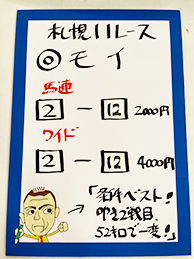 札幌11レース
◎モイ
馬連
2-12 2000円
ワイド
2-12 4000円
→「条件ベスト!
叩き2戦目、
52キロで一変!」